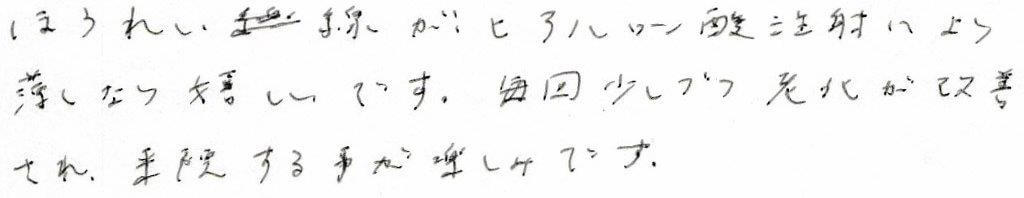 ほうれい線がヒアルロン酸注射により
薄くなり嬉しいです。毎回少しづつ老化が改善
され、来院する事が楽しみです。